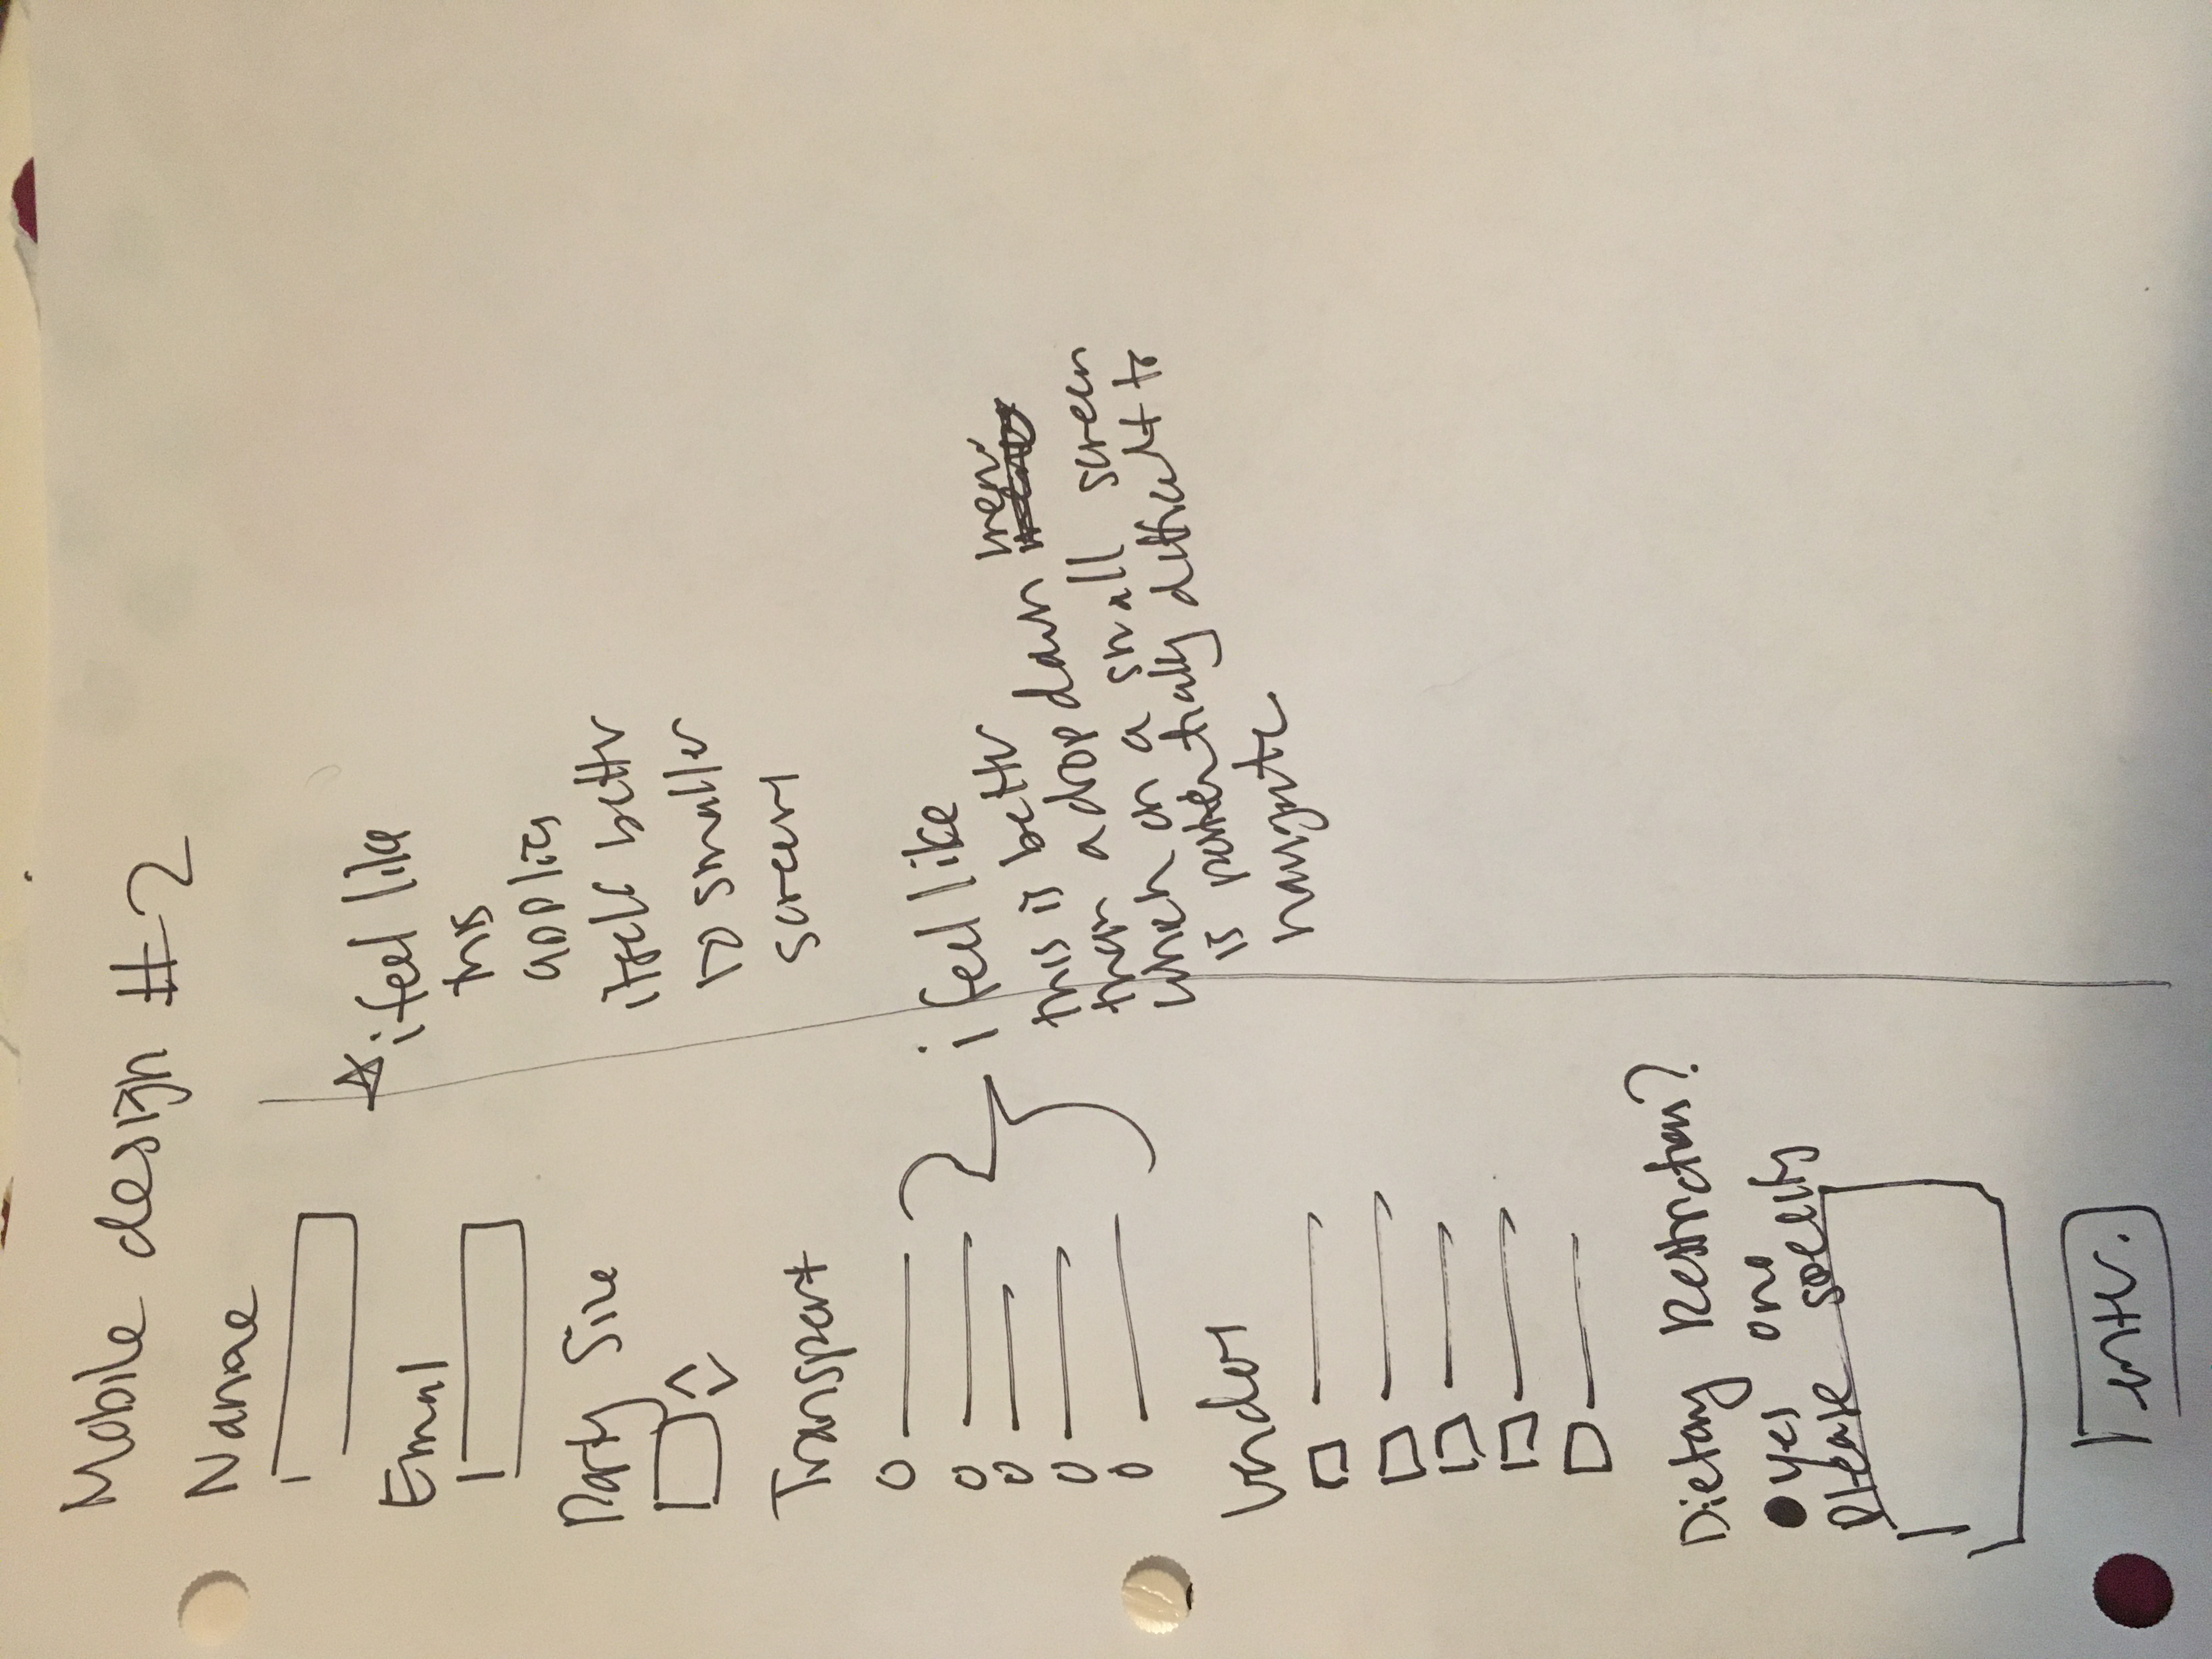 Mobile design #2
Name
Email
Party Size
Transport
Vendors
Dietary Restrictions?
yes no
Please specify
enter.
i feel like
this
applies
itself better
to smaller
screens
i feel like
this is better
than a dropdown menu
which on a small screen
is potentially difficult to
navigate